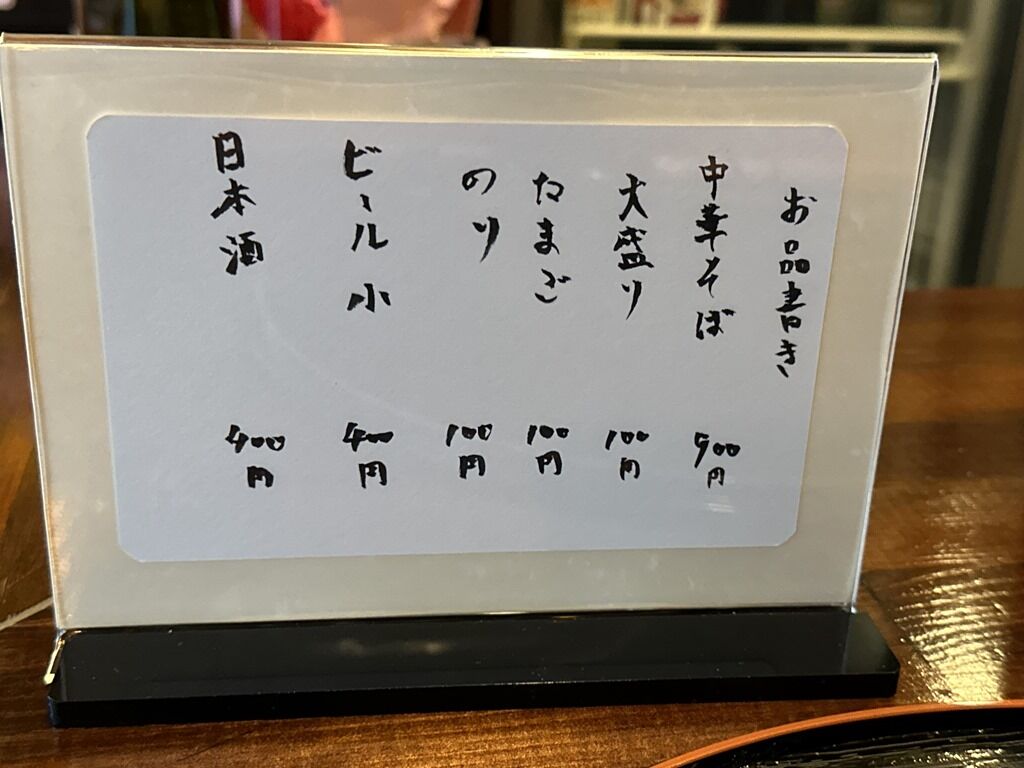 お品書き
中華そば 900円
大盛り 100円
たまご 100円
のり 100円
ビール 小 400円
日本酒 400円